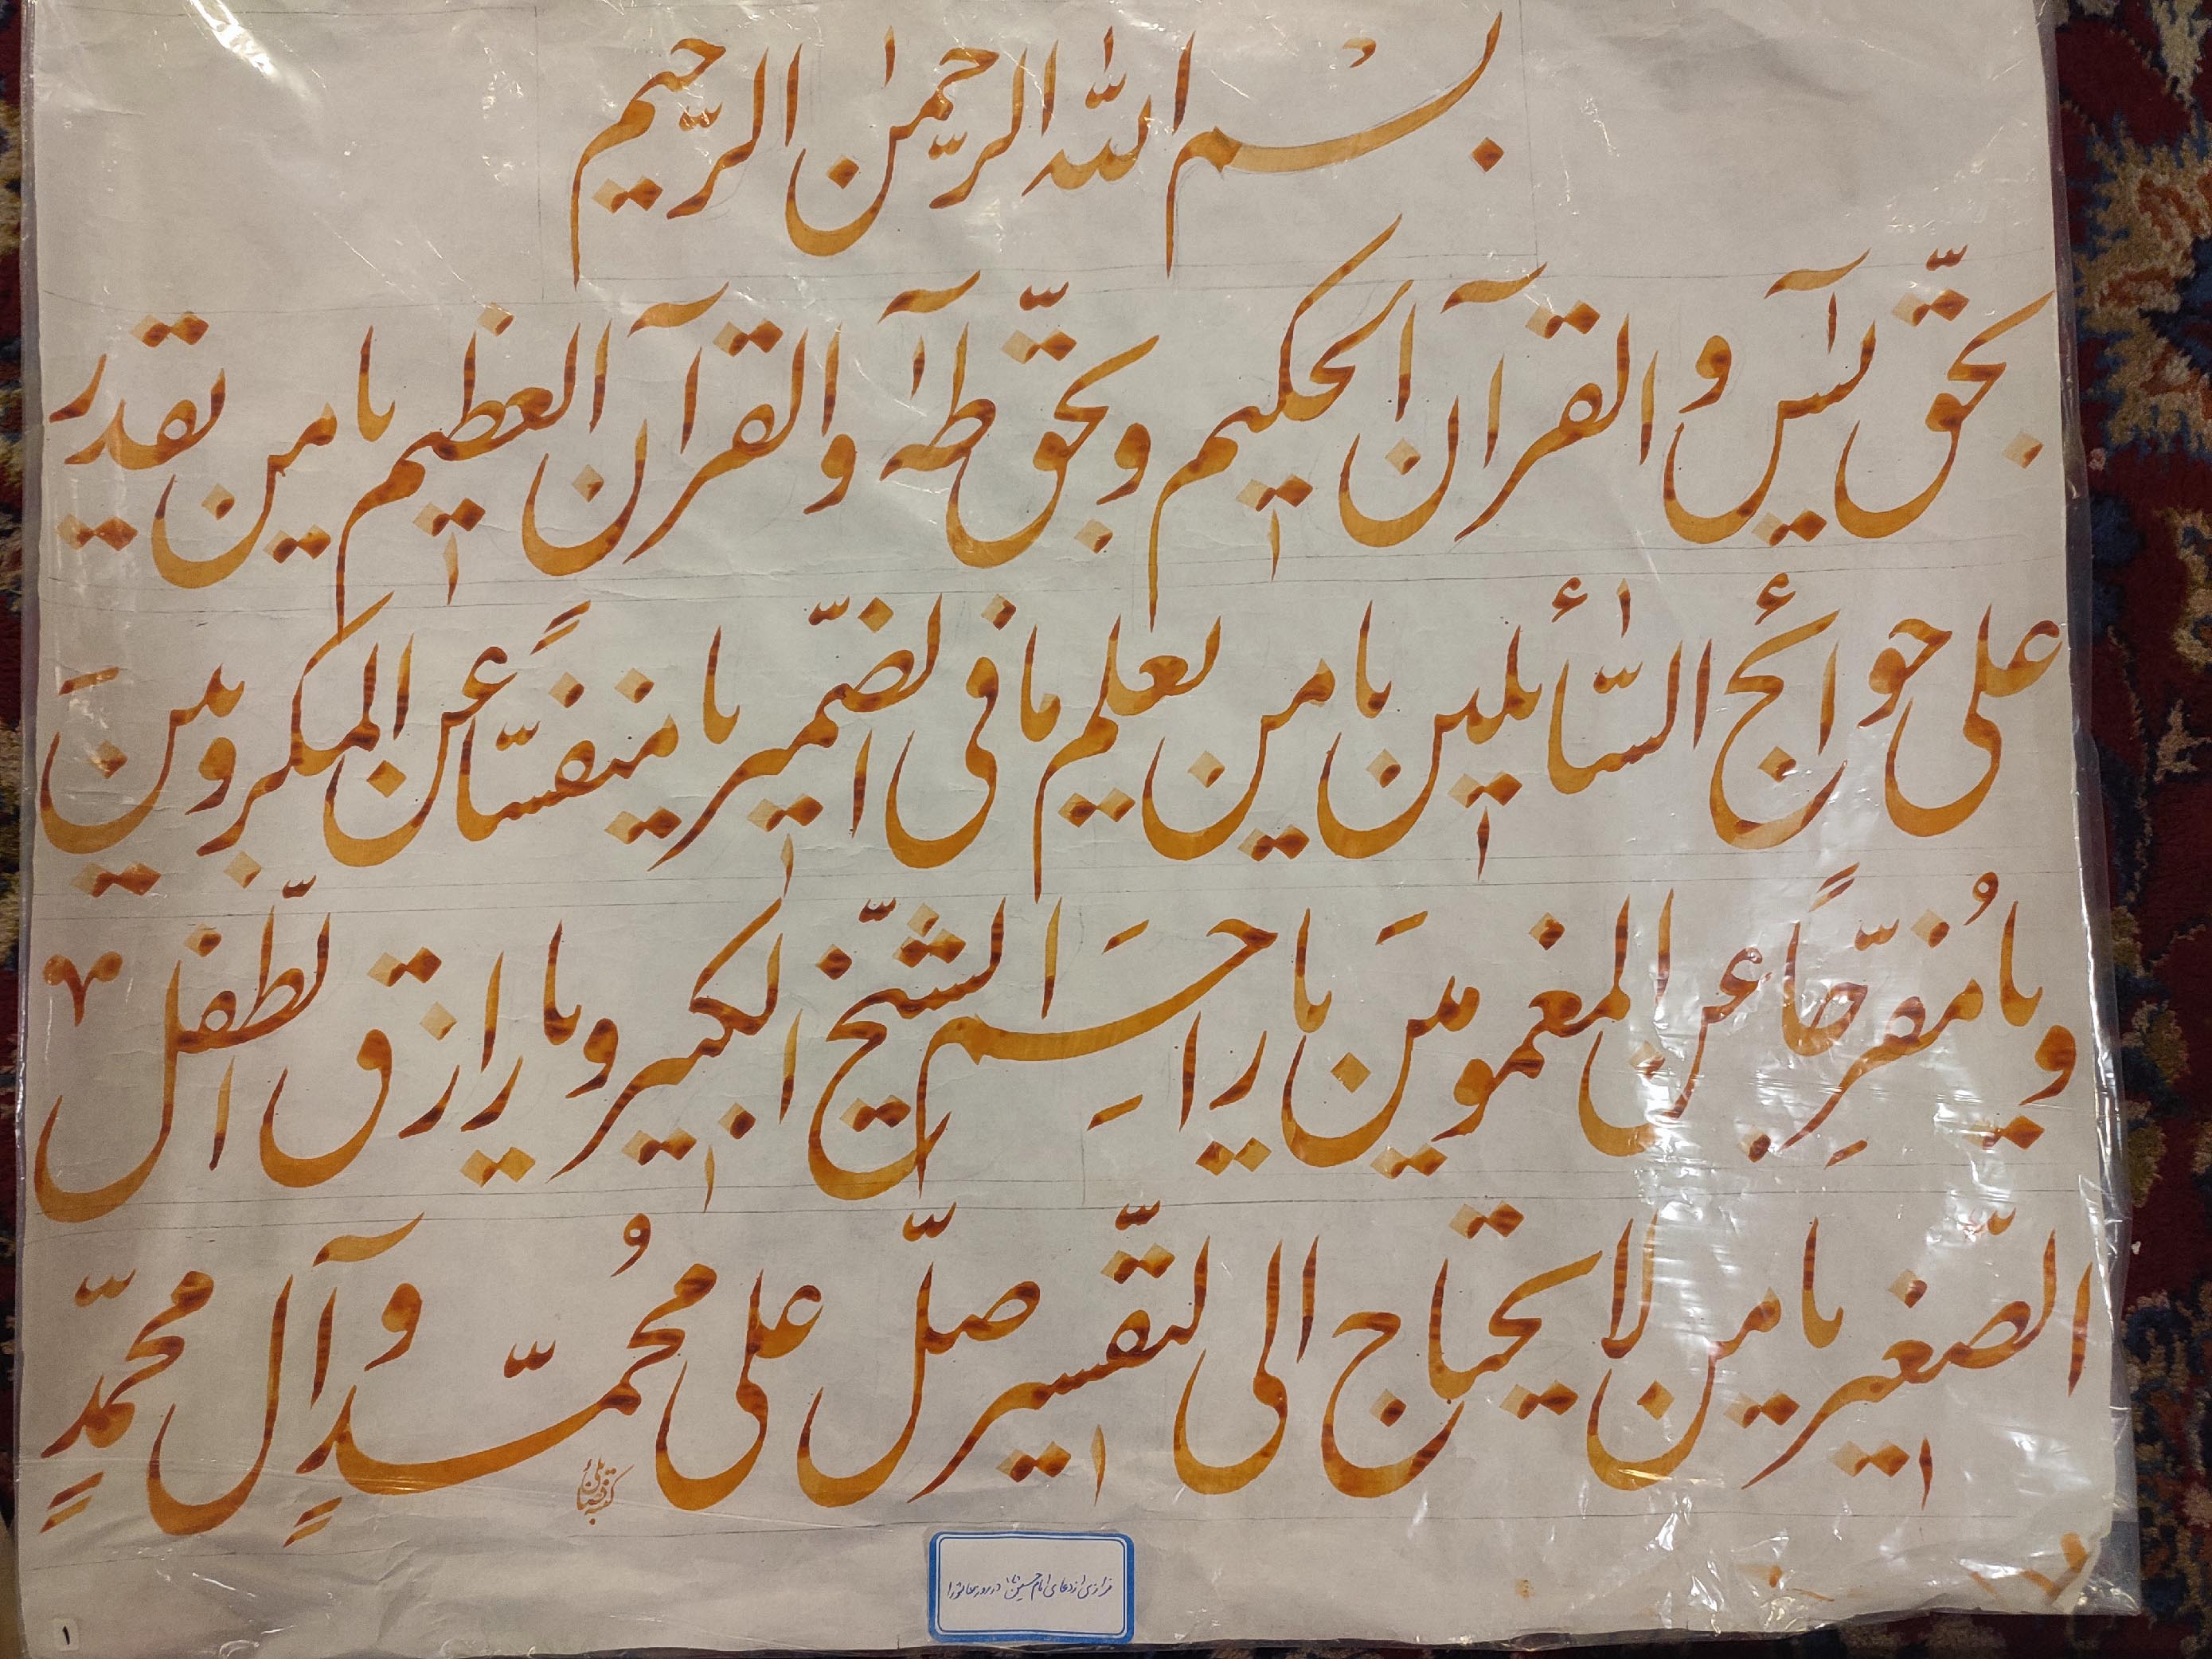 بسْم اللّٰه الرّحمٰن الرّحیم
بحقّ یٰسٓ و القرآن الحکیم و بحقّ طٰهٓ و القرآن العظیم یا من یقدر
علی حوائج السّائلین یا من یعلم ما فی الضّمیر یا منفسّاً عن المکروبینَ
و یا مُفرِّجاً عن المغمومینَ یا راحِمَ الشّیخ الکبیر و یا رازق الطّفل
الصّغیر یا من لا یحتاج الی التّفسیر صلّ علی مُحمّدٍ و آل محمّدٍ
فرازی از دعای امام حسین (ع) در روز عاشورا
۱